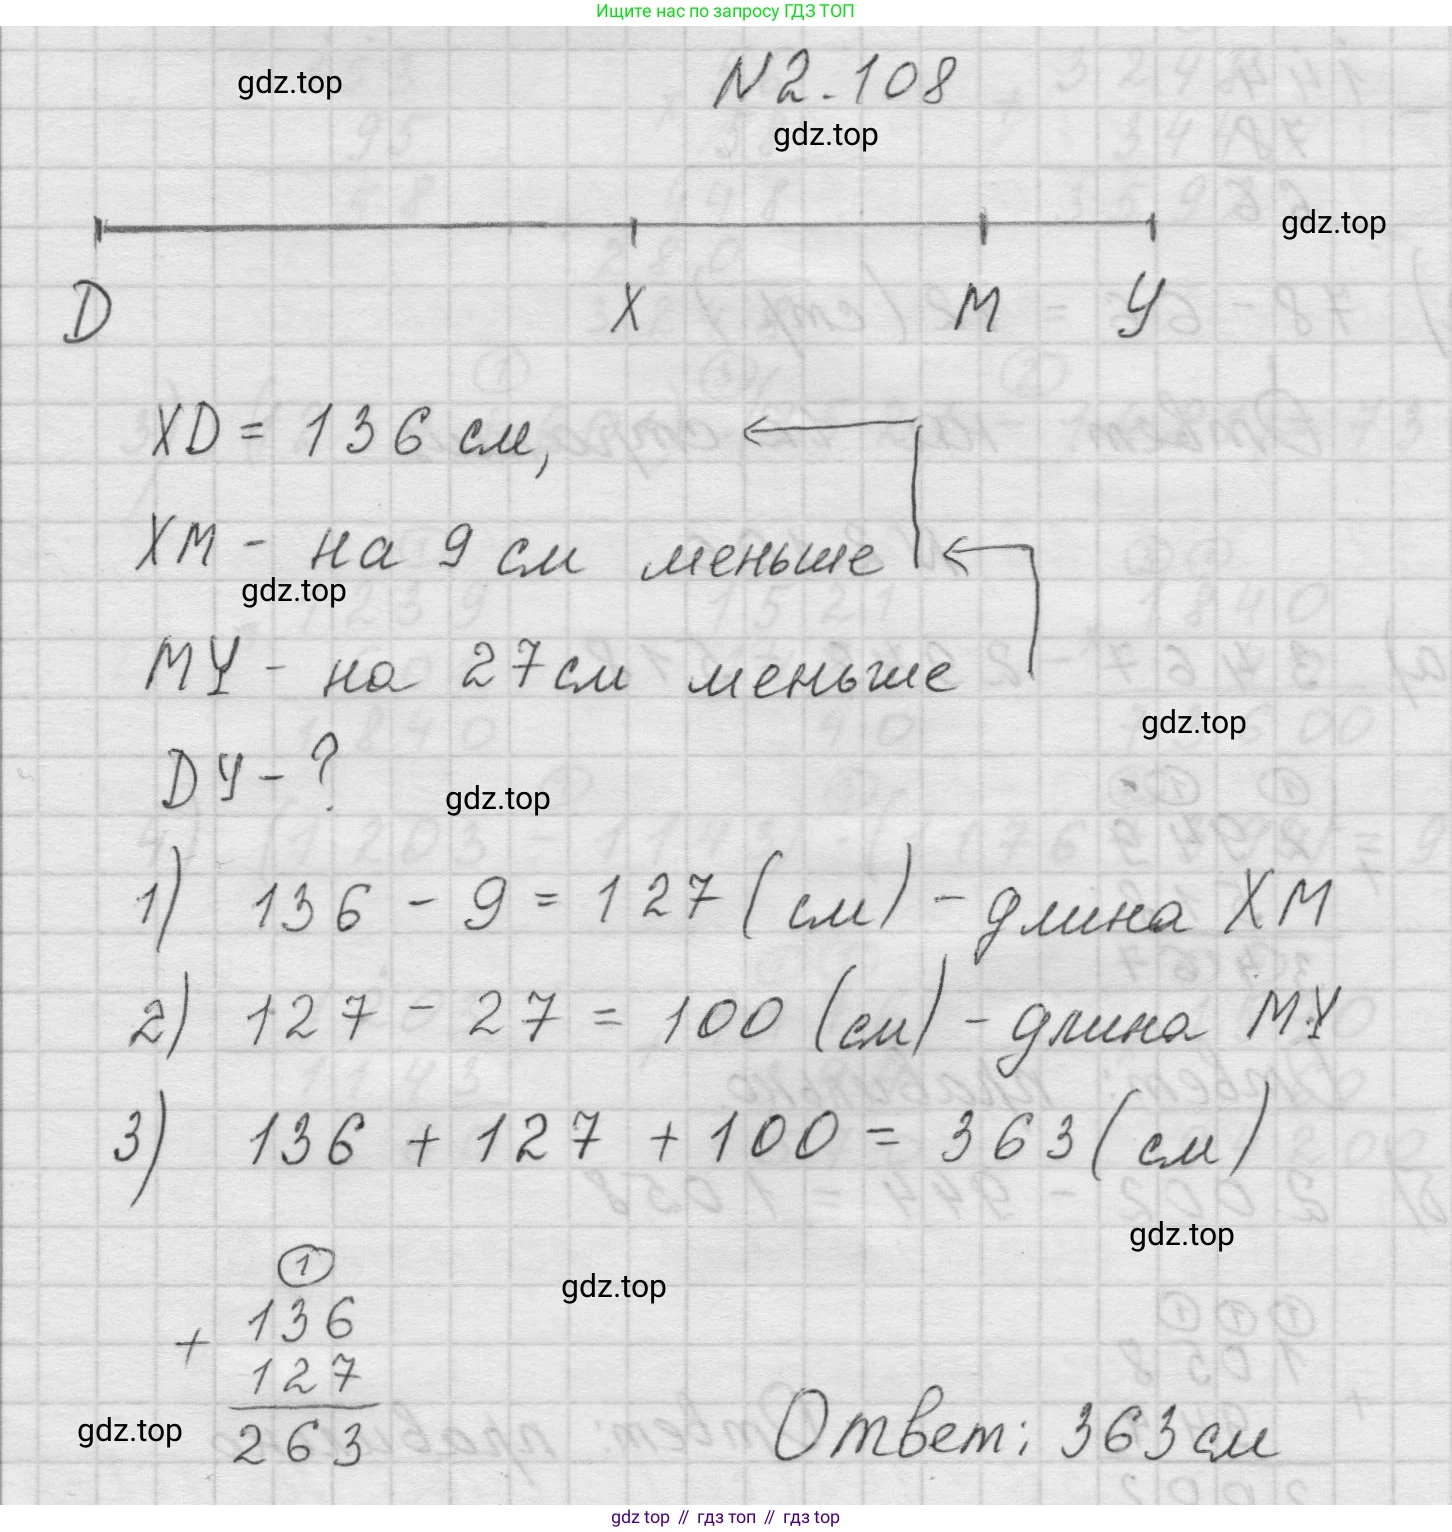 Ищите нас по запросу ГДЗ ТОП
gdz.top
N 2.108
gdz.top
gdz.top
D X M Y
XD = 136 см,
XM - на 9 см меньше
gdz.top
MY - на 27 см меньше
gdz.top
DY - ?
gdz.top
1) 136 - 9 = 127 (см) - длина XM
2) 127 - 27 = 100 (см) - длина MY
3) 136 + 127 + 100 = 363 (см)
gdz.top
1
gdz.top
136
+
127
gdz.top
263
Ответ: 363 см
gdz top // гдз топ // гдз top